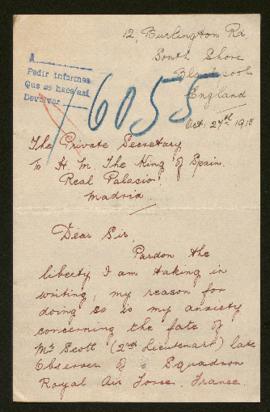 12, Burlington Rd
South Shore
Blackpool
England
Oct. 27th 1918
A
Pedir informes
Que se hace/así
Devolver
6055
The Private Secretary
To H. M. The King of Spain.
Real Palacio
Madrid.
Dear Sir,
Pardon the
liberty I am taking in
writing, my reason for
doing so is my anxiety
concerning the fate of
Mr Scott (2nd Lieutenant) late
Observer Squadron
Royal Air Force. France.